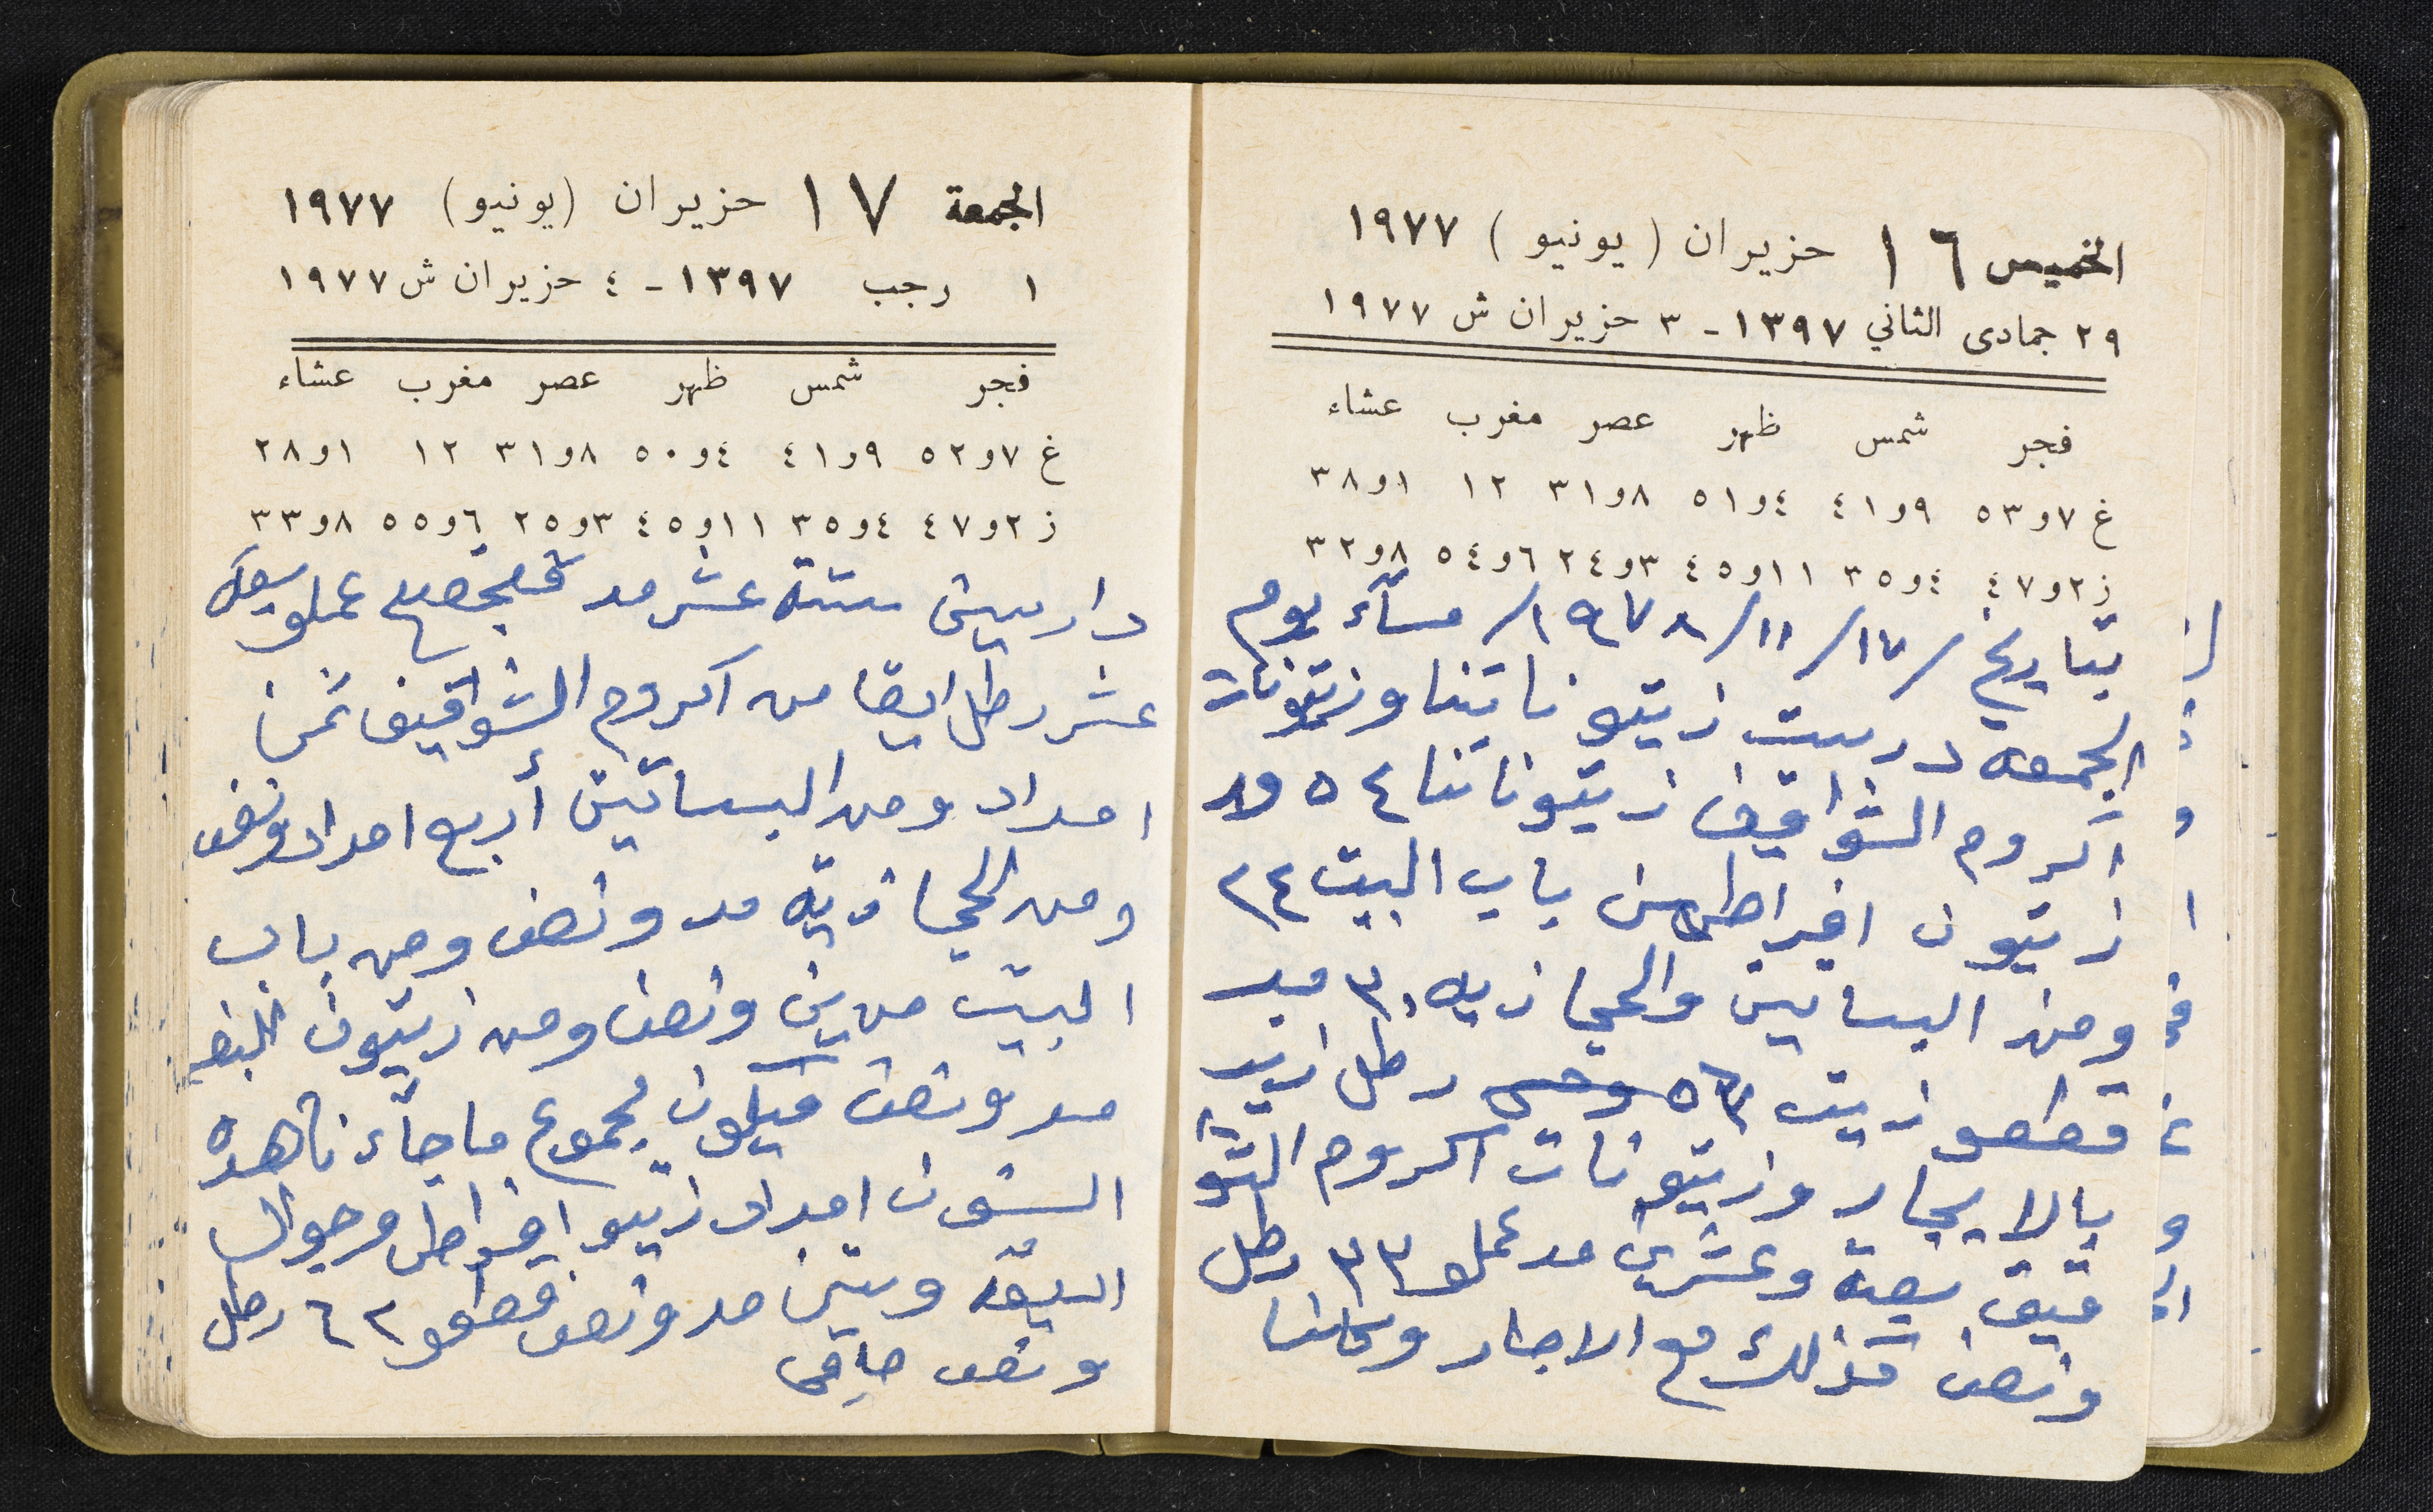 الخميس ١٦ حزيران (يونيو) ١٩٧٧
٢٩ جمادى الثاني ١٣٩٧ - ٣ حزيران ش ١٩٧٧
فجر شمس ظهر عصر مغرب عشاء
غ ٧و٥٣ ٩و٤١ ٤و٥١ ٨و٣١ ١٢ ١و٣٨
ز ٢و٤٧ ٤و٣٥ ١١و٤٥ ٣و٢٤ ٦و٥٤ ٨و٣٢
بتاريخ /١٧/١١/١٩٧٨/ مسآء يوم
الجمعه درست زيتوناتنا وزيتونات
اكروم الشواقيف زيتوناتنا ٥٤ مد
زيتون افراطس باب البيت ٢٤
ومن البساتين والحجازيه ٣٠ مد
قطعو زيت ٥٣ رطل ازيد
بالايجار وزيتونات اكروم الشوا
قيف بعة وعشرين مد عملو ٣٣ رطل
ونصف كذلك مع الاجار وكاننا
الجمعة ١٧ حزيران (يونيو) ١٩٧٧
١ رجب ١٣٩٧ - ٤ حزيران ش ١٩٧٧
فجر شمس ظهر عصر مغرب عشاء
غ ٧و٥٢ ٩و٤١ ٤و٥٠ ٨و٣١ ١٢ ١و٢٨
ز ٢و٤٧ ٤و٣٥ ١١و٤٥ ٣و٢٥ ٦و٥٥ ٨و٣٣
دارسين ستة عشر مد عملو
عشر رطل ايضا من اكروم الشواقيف ثمن
امداد ومن البساتين أربع امداد ونصف
ومن الحجازيه مد ونصف ومن باب
البيت مدين ونصف ومن زيتون
مد ونصف فيكون مجموع ما جآءنا هذه
السنة امداد زيتو افراط
وستين مد ونصف قطعو ٦٢ رطل
ونصف صافي